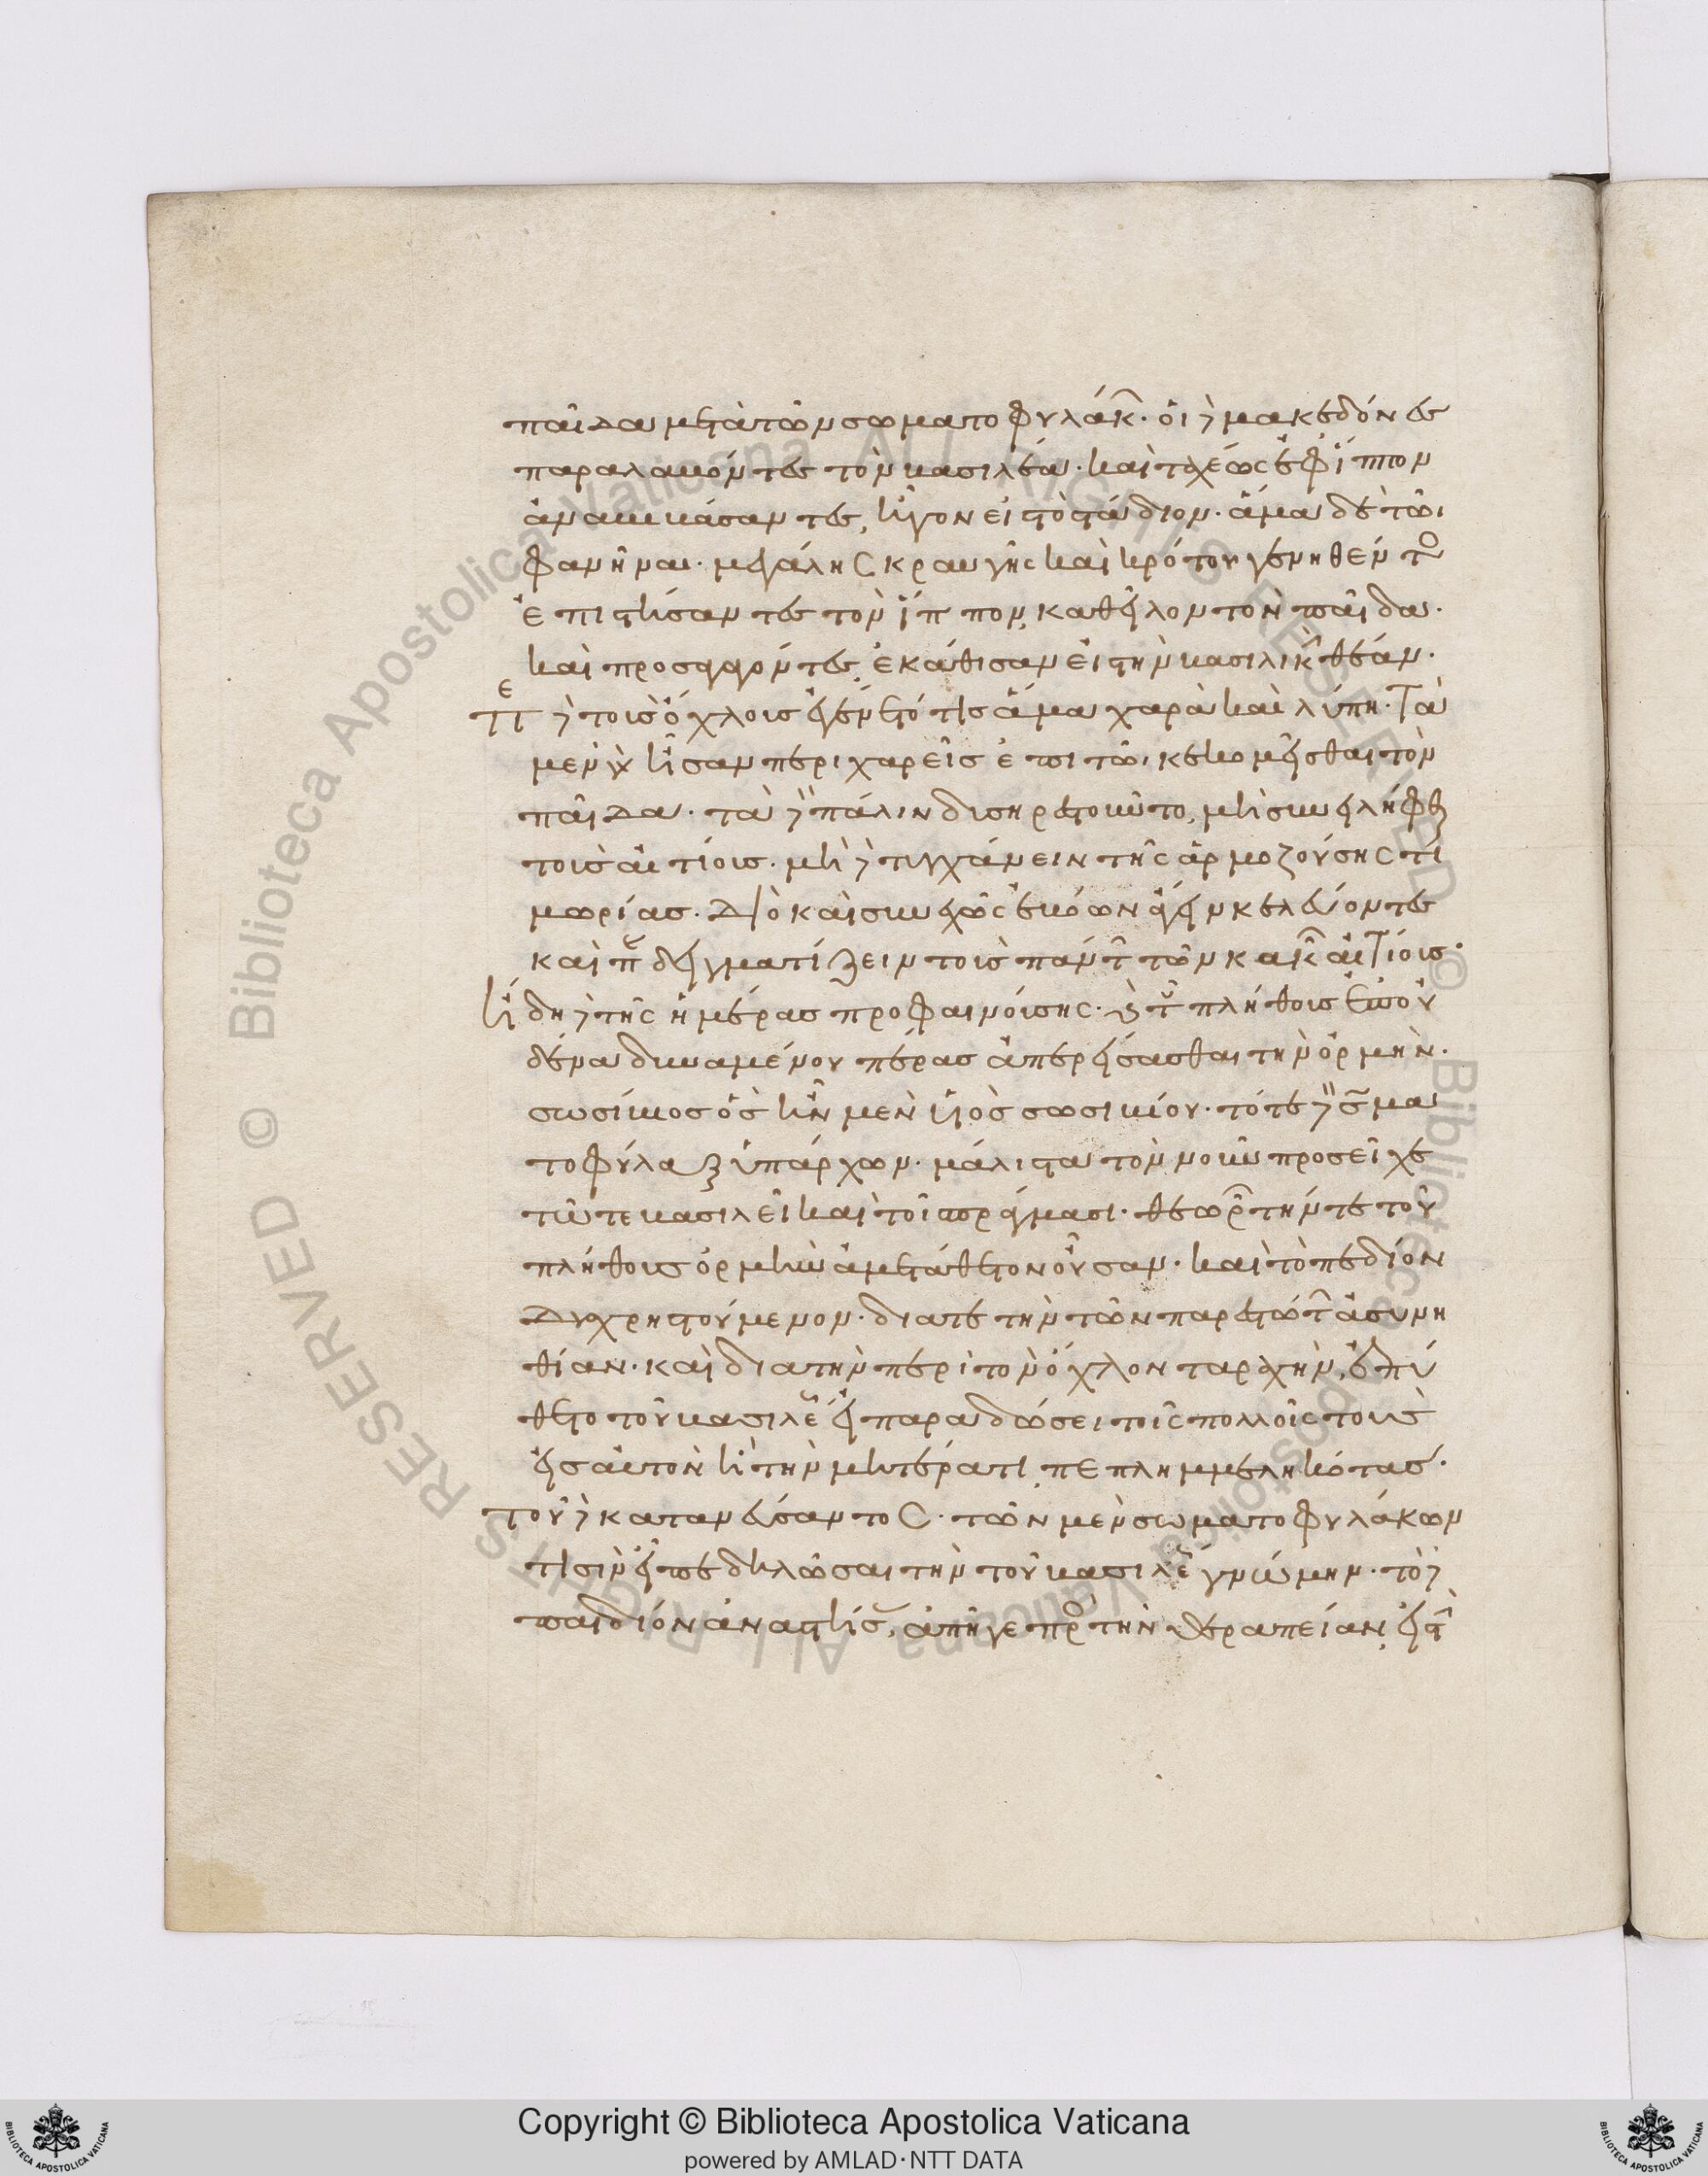 παῖδα μετὰ τῶν σωματοφυλάκ. οἱ δὲ μακεδόνες
παραλαβόντες τὸν βασιλέα. καὶ ταχέως ἐφ ἵππον
ἀναβιβάσαντες, ἦγον εἰς τὸ στάδιον. ἅμα δὲ τῶι
φανῆναι. μεγάλης κραυγῆς καὶ κρότου γενηθέντος
ἐπιστήσαντες τὸν ἵππον, καθεῖλον τὸν παῖδα.
καὶ προσαγαγόντες, ἐκάθισαν εἰς τὴν βασιλικὴν θέαν.
τοῖς δὲ ὄχλοις ἐγένετό τις ἅμα χαρὰ καὶ λύπη. Τὰ
μὲν γὰρ ἦσαν περιχαρεῖς ἐπὶ τῶι κεκομεῖσθαι τὸν
παῖδα. τὰ δὲ πάλιν δισηρεστοῦντο, μὴ συνειλῆφθαι
τοὺς αἰτίους. μὴ δὲ τυγχάνειν τῆς ἁρμοζούσης τι
μωρίας. Διὸ καὶ συνεχῶς ἐβόων ἄγειν κελεύοντες
καὶ παραδειγματίζειν τοὺς πάντων τῶν κακῶν αἰτίους.
ἤδη δὲ τῆς ἡμέρας προφαινούσης. καὶ τοῦ πλήθους ἐπ οὐ
δένα δυναμένου πέρας ἀπερείσασθαι τὴν ὁρμὴν.
σωσίβιος ὃς ἦν μὲν υἱὸς σωσιβίου. τότε δὲ σωμα
τοφύλαξ ὑπάρχων. μάλιστα τὸν νοῦν προσεῖχε
τῶ τε βασιλεῖ καὶ τοῖς πράγμασι. θεωρῶν τήν τε τοῦ
πλήθους ὁρμὴν ἀμετάθετον οὖσαν. καὶ τὸ πεδίον
Δυχρηστούμενον. διά τε τὴν τῶν παρεστώτων ἀσυνη
θίαν. καὶ διὰ τὴν περὶ τὸν ὄχλον ταραχὴν, ἐπύ
θετο τοῦ βασιλέως εἰ παραδώσει τοῖς πολλοῖς τοὺς
εἰς αὐτὸν ἢ τὴν μητέρα τι πεπλημμεληκότας.
τοῦ δὲ κατανεύσαντος. τῶν μὲν σωματοφυλάκων
τισὶν εἶπε δηλῶσαι τὴν τοῦ βασιλέως γνώμην. τὸ δὲ
παιδίον ἀναστήσας, ἀπῆγε πρὸς τὴν θεραπείαν, εἰς τὴν